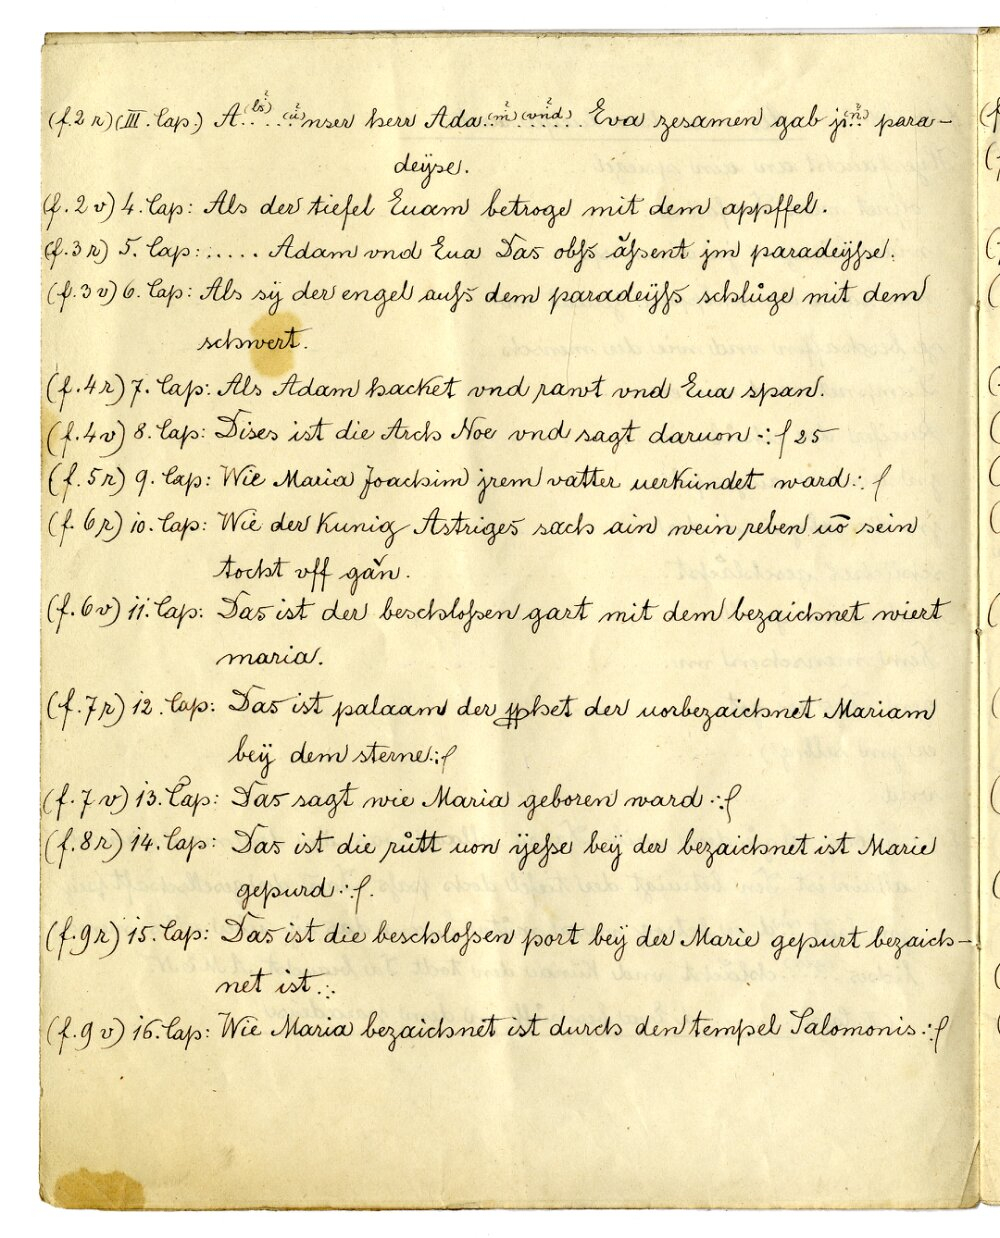 (f.2r) (III. Cap.) A..(ls?)..(u?)nser herr Ada..(m?)..(vnd?).. Eva zesamen gab ji(n?).. para-
deÿse.
(f.2v) 4. Cap: Als der tiefel Euam betroge mit dem appffel.
(f.3r) 5. Cap: ..... Adam vnd Eua Das obſs äſsent jm paradeÿſse.
(f.3v) 6. Cap: Als sÿ der engel auſs dem paradeÿſs schlůge mit dem
schwert.
(f.4r) 7. Cap: Als Adam hacket vnd rawt vnd Eua span.
(f.4v) 8. Cap: Dises ist die Arch Noe vnd sagt daruon ·:ſ 25
(f.5r) 9. Cap: Wie Maria Joachim jrem vatter uerkündet ward :· ſ
(f.6r) 10. Cap: Wie der Kunig Astriges sach ain wein reben uō sein
tocht vff gǎn.
(f.6v) 11. Cap: Das ist der beschloſsen gart mit dem bezaichnet wiert
maria.
(f.7r) 12. Cap: Das ist palaam der ꝓphet der uorbezaichnet Mariam
beÿ dem sterne :ſ
(f.7v) 13. Cap: Das sagt wie Maria geboren ward ·:ſ
(f.8r) 14. Cap: Das ist die růtt uon ÿeſse beÿ der bezaichnet ist Marie
gepurd ·:ſ.
(f.9r) 15. Cap: Das ist die beschloſsen port beÿ der Marie gepurt bezaich-
net ist :·
(f.9v) 16. Cap: Wie Maria bezaichnet ist durch den tempel Salomonis ·:ſ